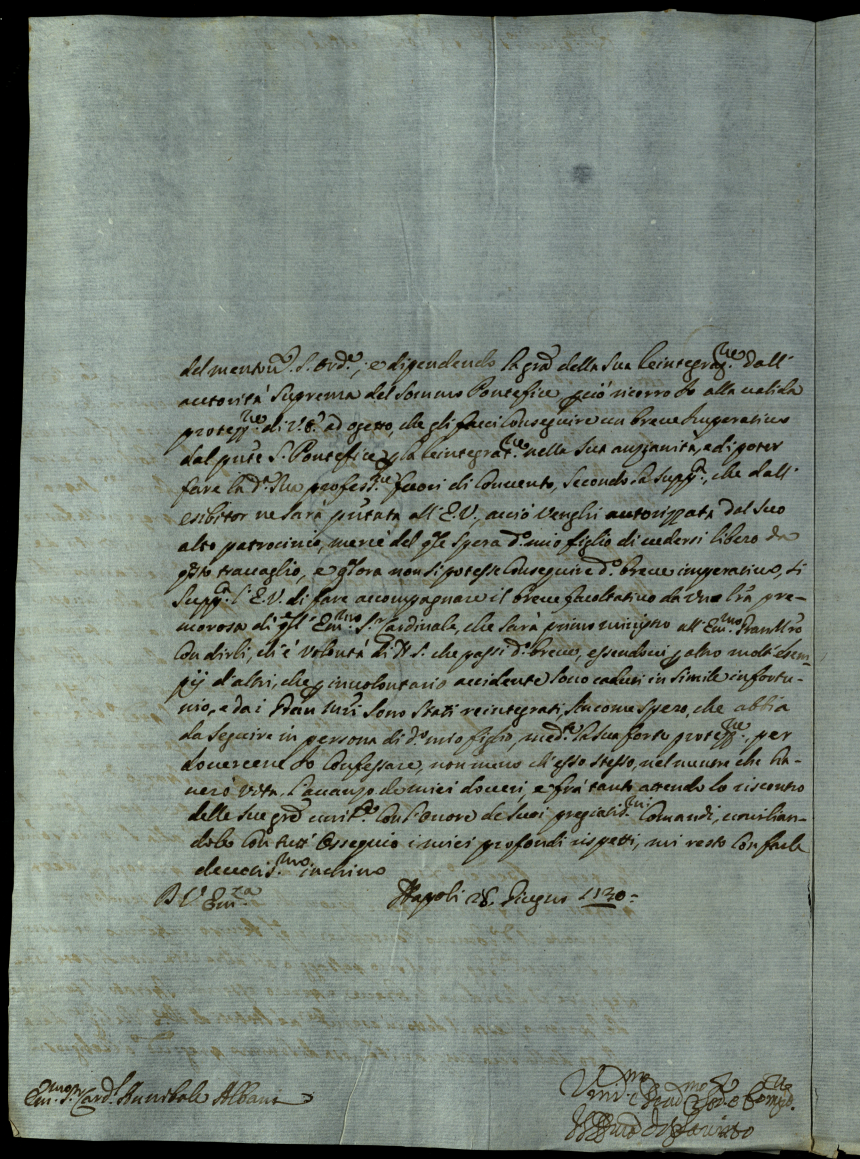 del mento.n S. Ord.e, e dipendendo la gra della sua reintegraz.ne dall'
autorità suprema del Sommo Pontefice, perciò ricorro Io alla valida
protez.ne di V.E. ad ogetto, che gli facci conseguire un breve Imperativo
dal pnte S. Pontefice per la reintegrat.ne nella sua anzianità, e di poter
fare la d.a Sua profess.ne fuori di Convento, secondo la supp.ca, che dall'
esibitor ne sarà pntata all'E.V., acciò venghi autorizzata dal suo
alto patrocinio, mercè del qle spera d.o mio figlio di vedersi libero da
qsto travaglio, e qlora non si potesse conseguire d.o breve imperativo, si
supp.ca l'E.V. di fare accompagnare il breve facoltativo da una lra pre-
morosa di qll' Em.mo S.r Cardinale, che sarà primo ministro all'Em.mo Gran Mro
con dirli, ch'è volontà di N. S. che passi d.o breve, essendoci per altro molti esem-
pij d'altri, che per involontario accidente sono caduti in simile infortu-
nio, e da i Gran Mri sono stati reintegrati, sincome spero, che abbia
da seguire in persona di d.o mio figlio, med.te la sua forte protez.ne, per
dovercene Io confessare, non meno ch'esso stesso, nel mentre che ha-
verò vita, l'avanzo de miei doveri, e frà tanto attendo lo riscontro
delle sue gre unit.e con l'onore de suoi pregiatis.mi Comandi, umilian-
dole con tutt'ossequio i miei profondi rispetti, mi resto con farle
devotis.mo inchino
D V Em.za Napoli 28. Giugno 1730=
Em.mo S.r Card.l Annibale Albani
Um.mo Devd.mo